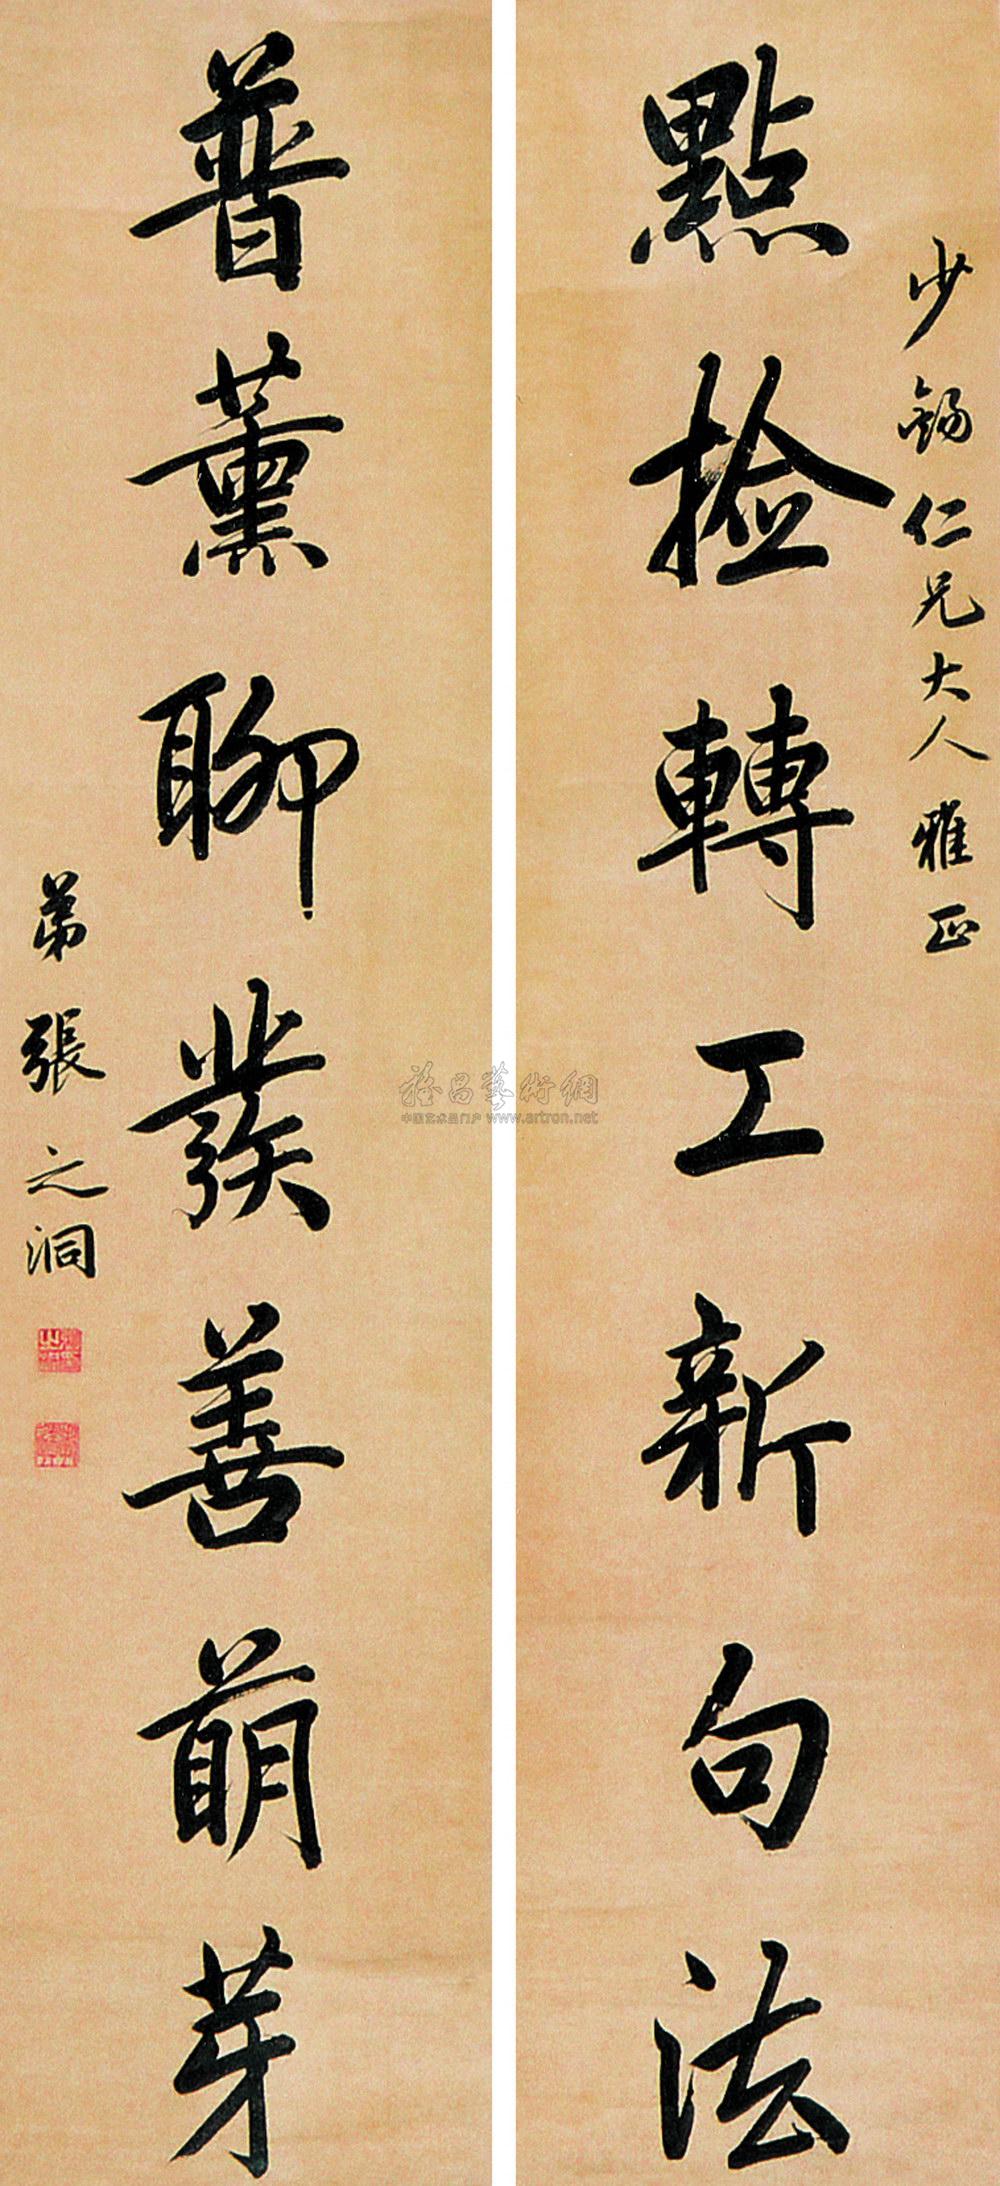 少錫仁兄大人雅正
點撿轉工新句法
普薰聊發善萌芽
弟張之洞
雅昌藝術網
中国艺术品门户 www.artron.net